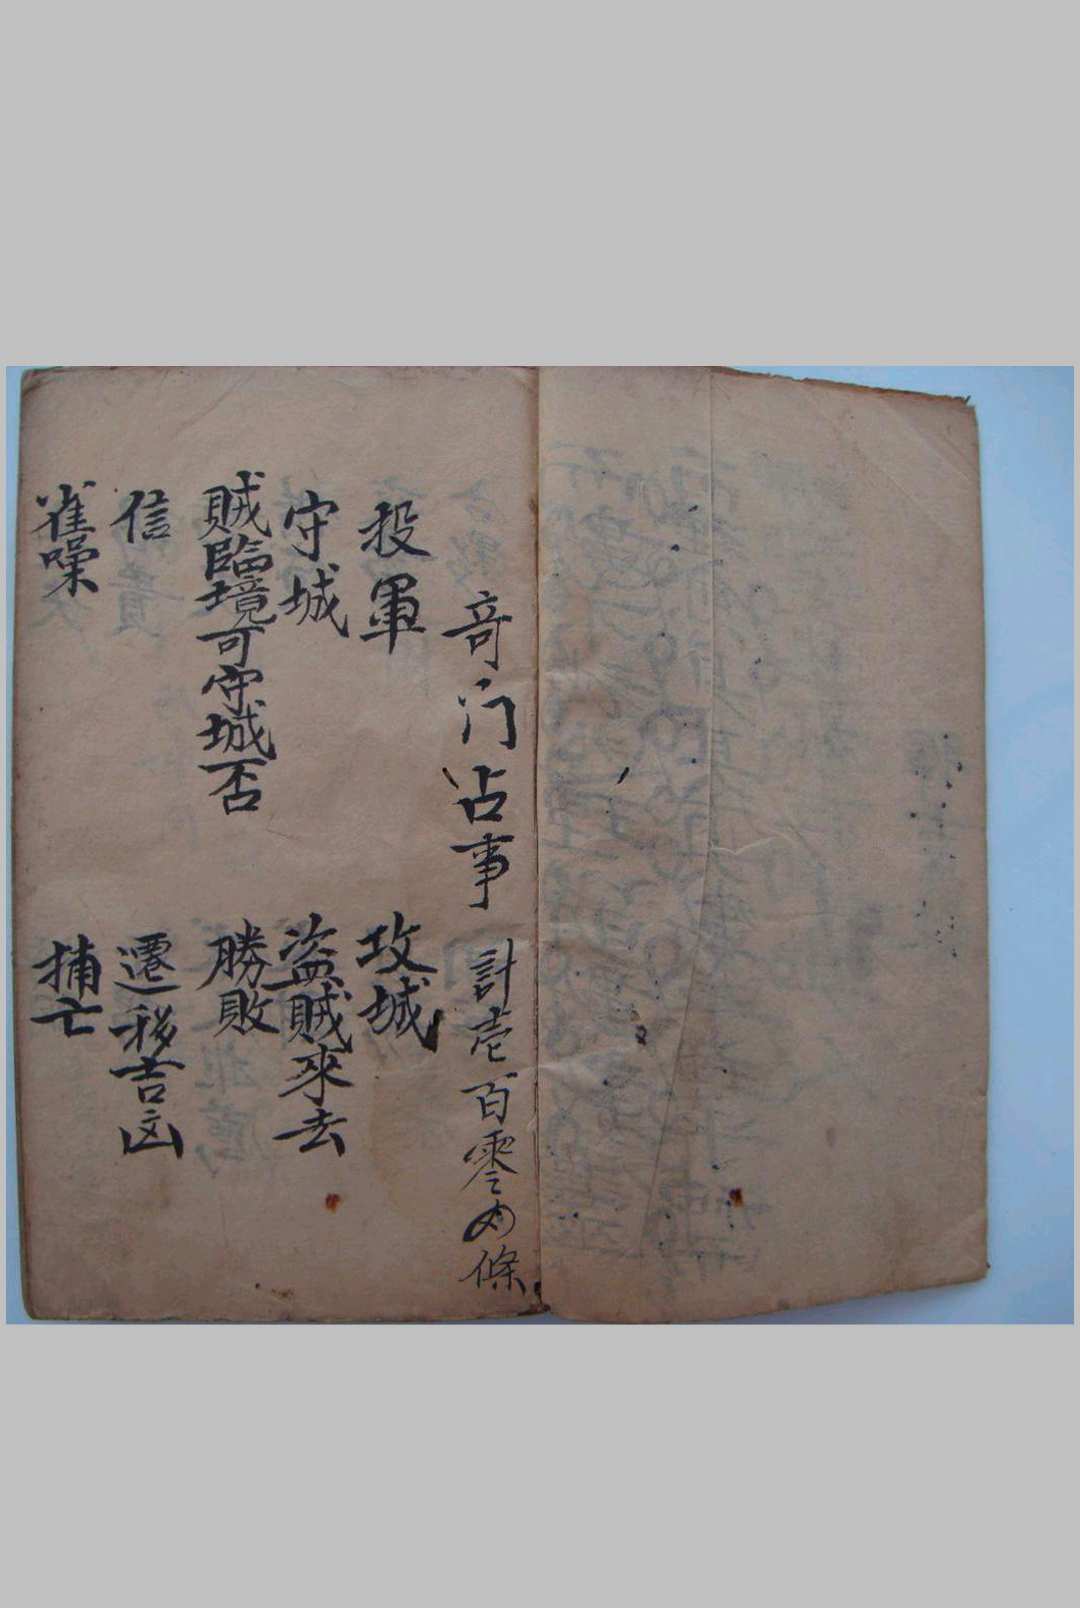 竒门占事 計壱百零條
投軍 攻城
守城 盗賊來去
賊臨境可守城否 勝敗
信 遷移吉凶
雀噪 捕亡